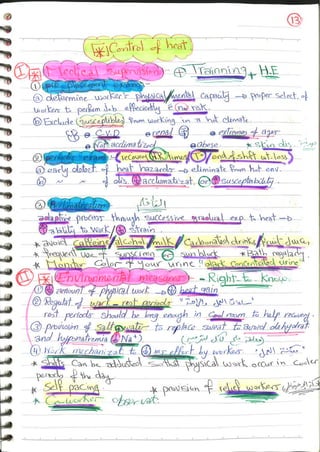 13
[*] Control of heat
I * Medical Supervision + Training + H.E
① pre placement exam
ⓐ determine worker's physical/mental capacity → proper select. of
workers to perform Job effeciently & (no) risk.
ⓑ Exclude susceptibles from working in a hot climate
C.V.D renal extremes of ages
not acclimatized obese * skin dis.
② periodic exam recovery H.R / urine / T° end of shift wt. loss
ⓐ early detect. of heat hazards → eliminate from hot env.
ⓑ " " of dis. acclimatizat. or ↑ susceptibility.
③ Acclimatization
adaptive process through successive gradual exp. to heat →
↑ ability to Work / ↓ strain
* avoid caffeine / alcohol / milk / Carbonated drinks / fruit Juice
* frequent use of sunscreen or sun block * Bath regularly
* Monitor Color of your urine dark concentrated urine
II * Environmental measures - Right-to-Know
① ↓ amount of physical work → ↓ heat gain
② Regulat. of work-rest periods
rest periods should be long enough in cool room to help recovery
③ provision of salt & water to replace sweat to avoid dehydrat.
and hyponatremia (↓ Na⁺)
④ Work mechanizat. to ↓ ms effort by workers
* shifts can be adjusted so that physical work occur in cooler
periods of the day
* Self pacing * provision of relief workers
* Co-worker observat.